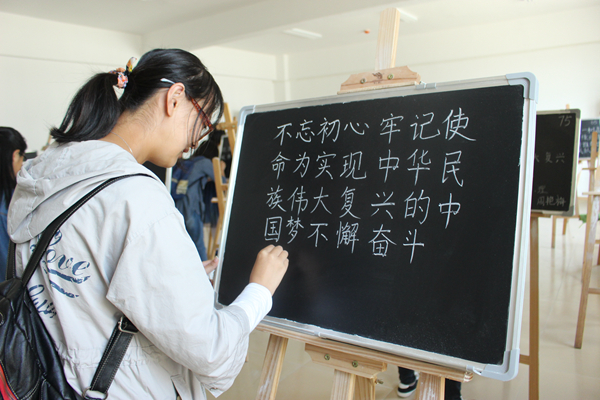 不忘初心牢记使
命为实现中华民
族伟大复兴的中
国梦不懈奋斗
75
Love